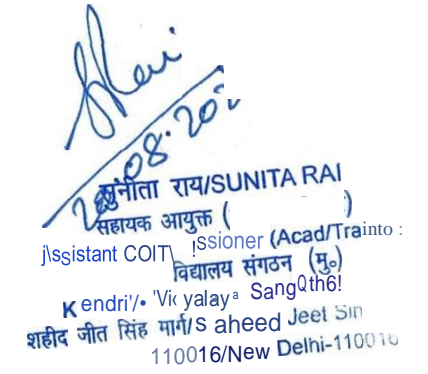 08.202
सुनीता राय/SUNITA RAI
सहायक आयुक्त ( )
j\ssistant COIT\ !ssioner (Acad/Trainto :
विद्यालय संगठन (मु०)
Kendri'/• 'Vi yalaya SangQth6!
शहीद जीत सिंह मार्ग/s aheed Jeet Sin
110016/New Delhi-110016